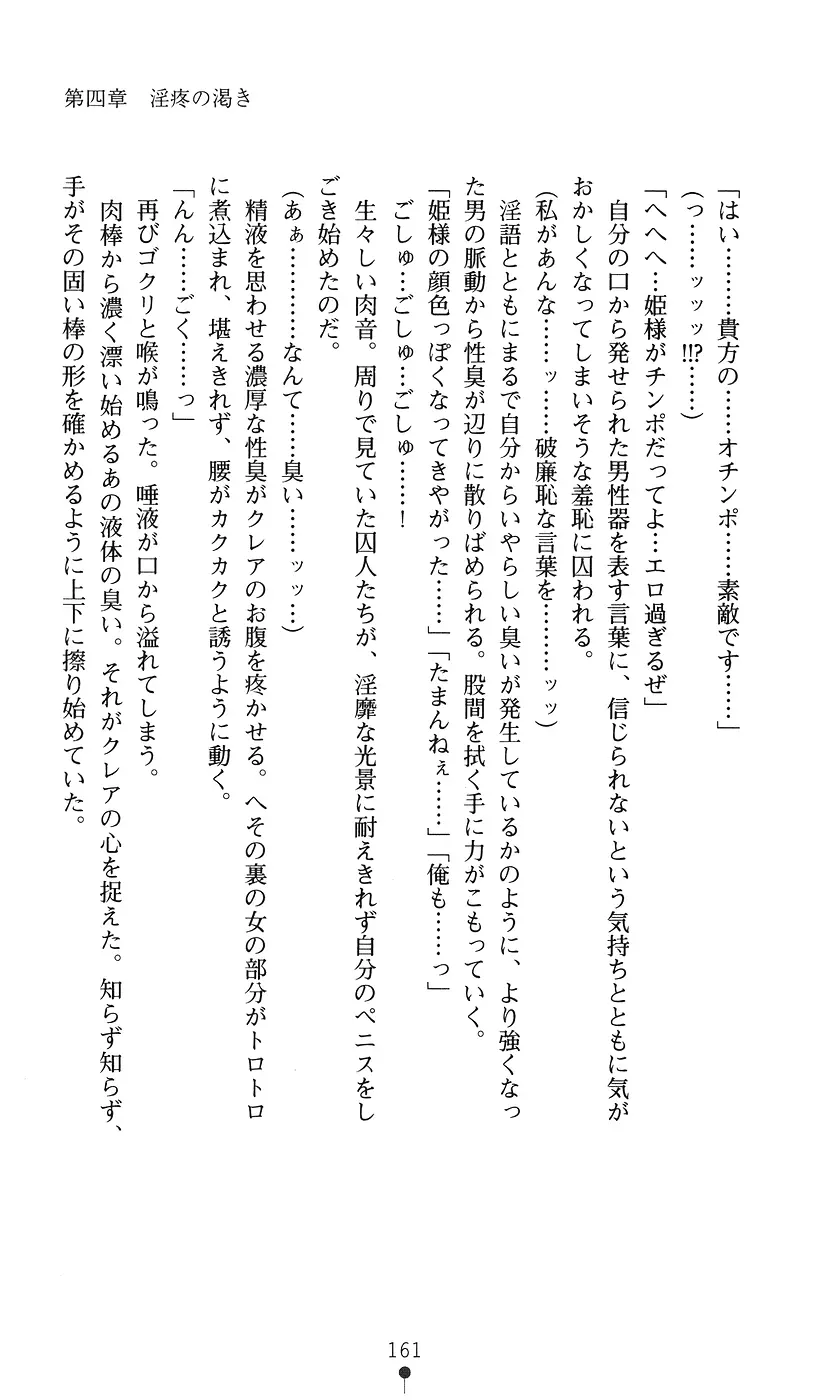 第四章　淫疼の渇き
「はい………貴方の……オチンポ……素敵です……」
（っ……ッッッ!!?……）
「へへへ…姫様がチンポだってよ…エロ過ぎるぜ」
　自分の口から発せられた男性器を表す言葉に、信じられないという気持ちとともに気が
おかしくなってしまいそうな羞恥に囚われる。
（私があんな……ッ……破廉恥な言葉を………ッッ）
　淫語とともにまるで自分からいやらしい臭いが発生しているかのように、より強くなっ
た男の脈動から性臭が辺りに散りばめられる。股間を拭く手に力がこもっていく。
「姫様の顔色っぽくなってきやがった……」「たまんねぇ……」「俺も……っ」
　ごしゅ…ごしゅ…ごしゅ……！
　生々しい肉音。周りで見ていた囚人たちが、淫靡な光景に耐えきれず自分のペニスをし
ごき始めたのだ。
（あぁ…………なんて……臭い……ッッ…）
　精液を思わせる濃厚な性臭がクレアのお腹を疼かせる。へその裏の女の部分がトロトロ
に煮込まれ、堪えきれず、腰がカクカクと誘うように動く。
「んん……ごく……っ」
　再びゴクリと喉が鳴った。唾液が口から溢れてしまう。
　肉棒から濃く漂い始めるあの液体の臭い。それがクレアの心を捉えた。知らず知らず、
手がその固い棒の形を確かめるように上下に擦り始めていた。
161